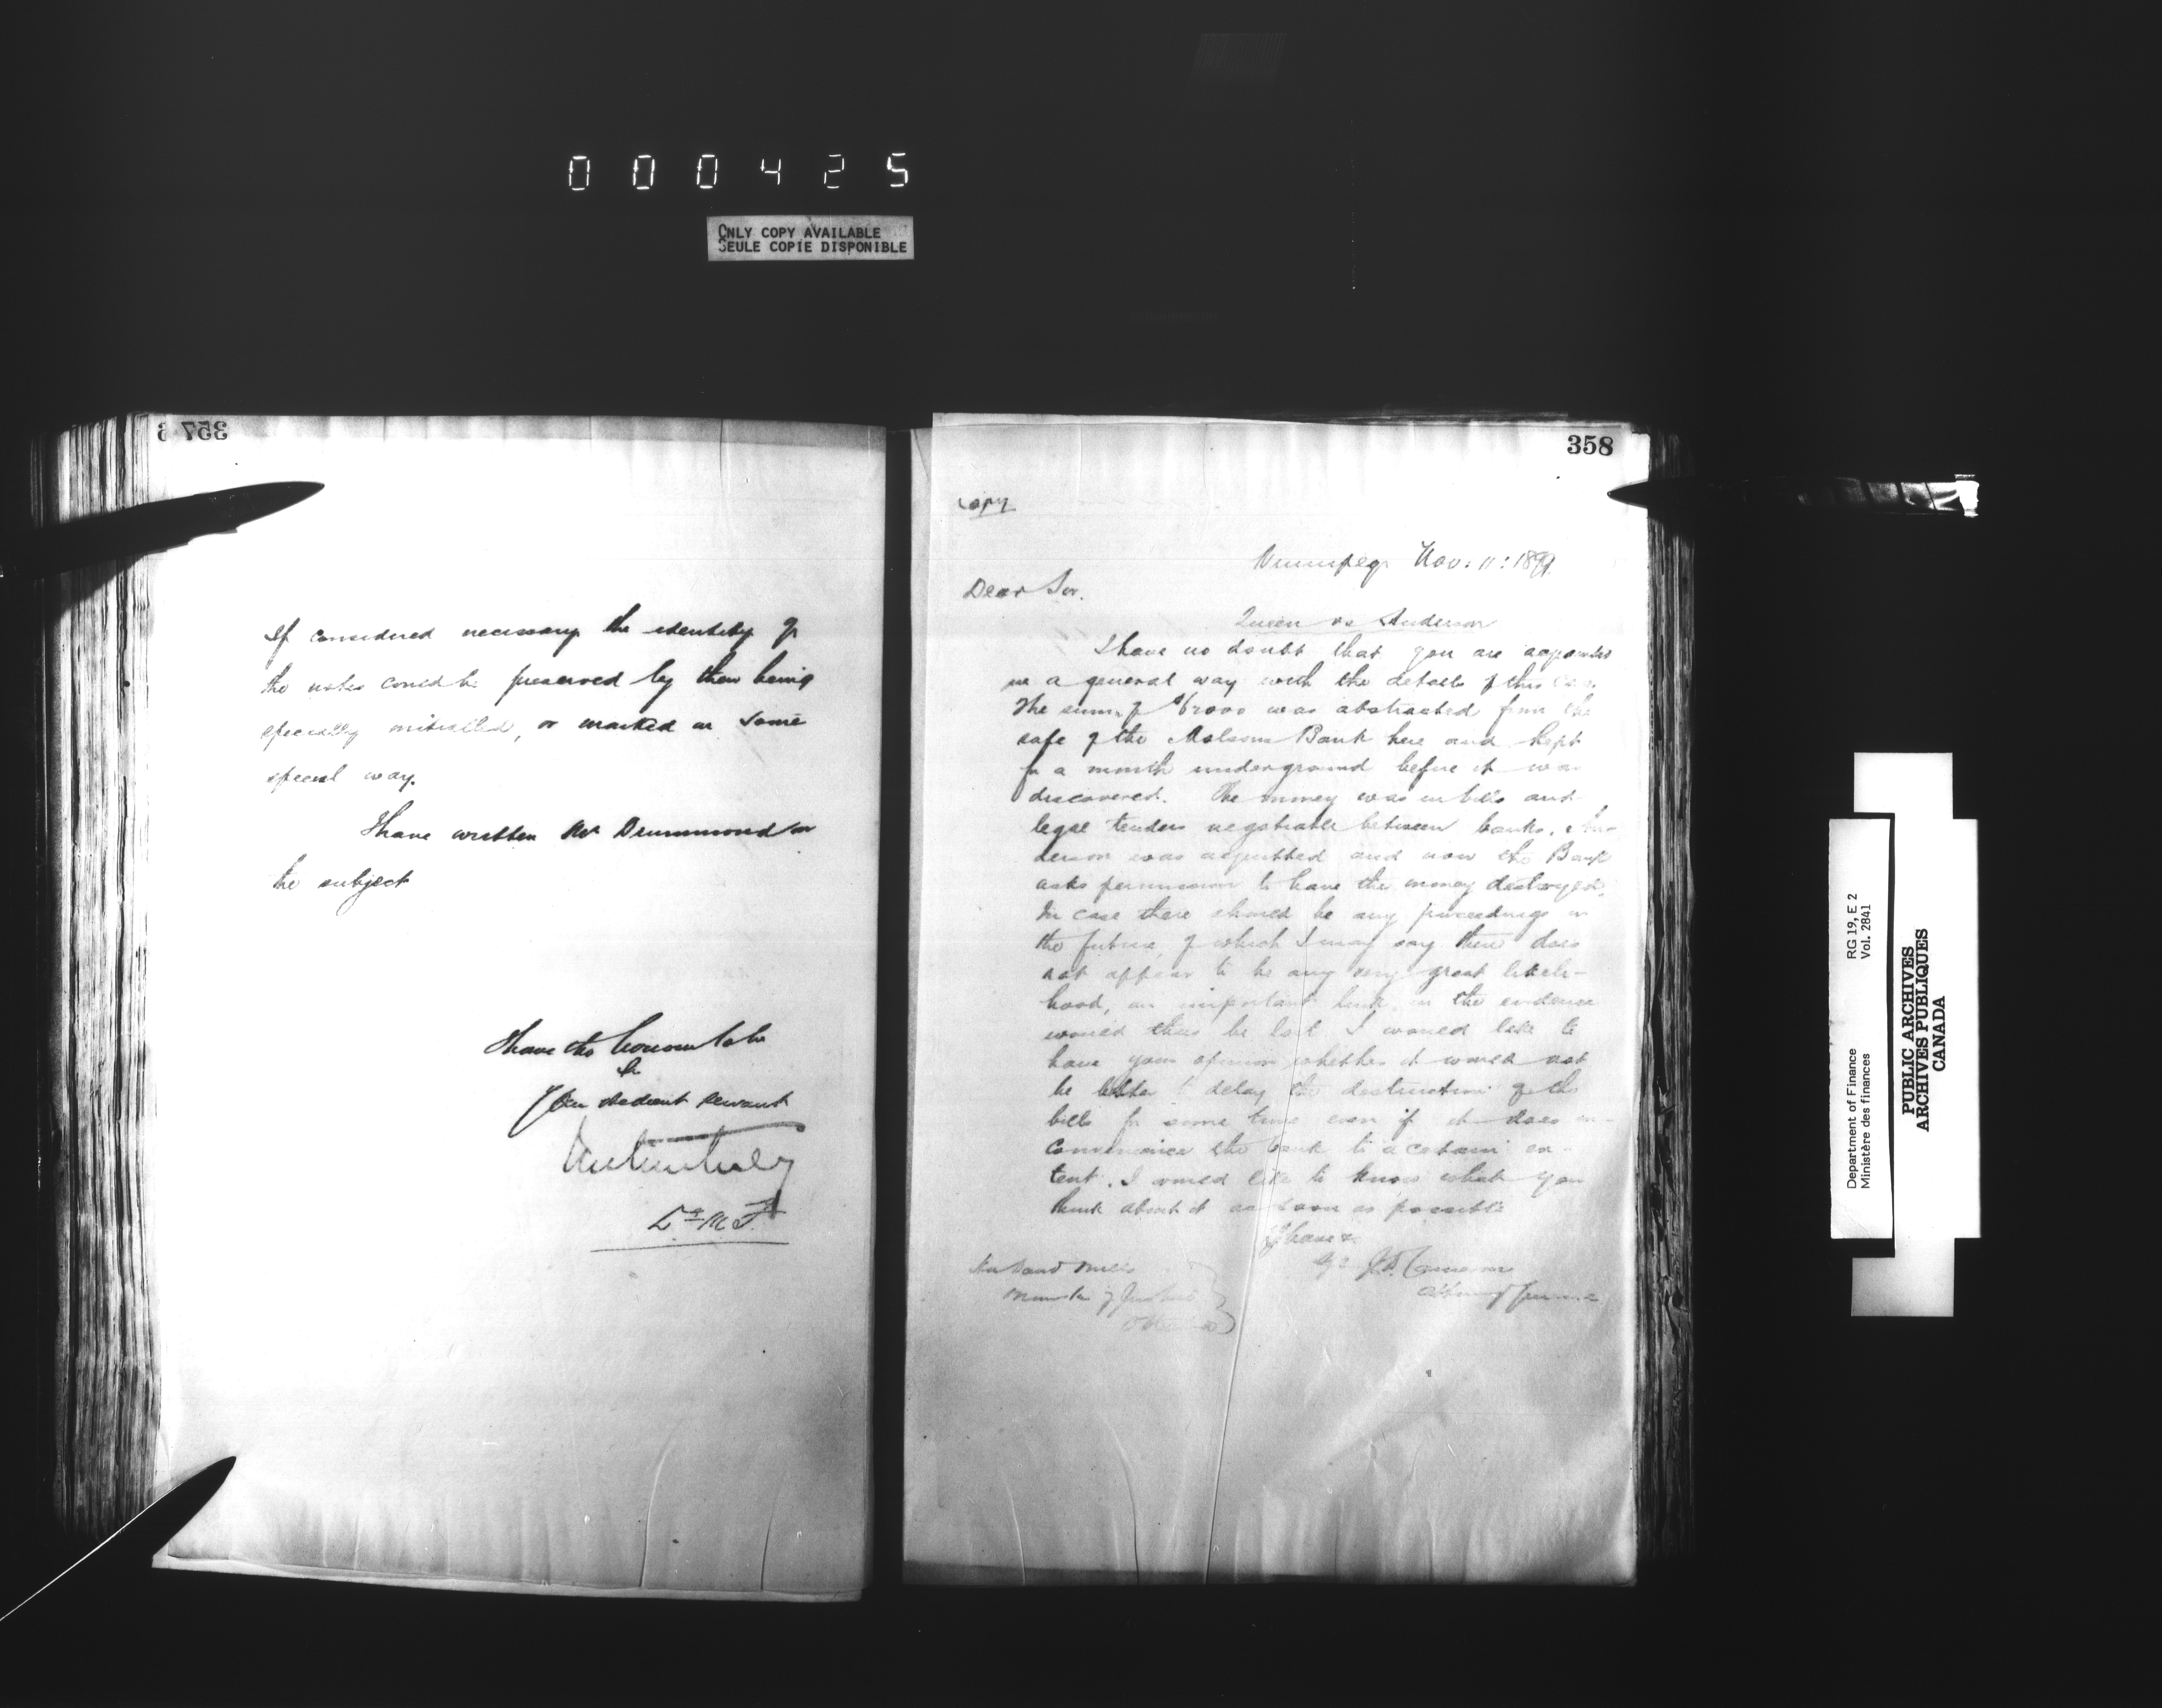 000425
ONLY COPY AVAILABLE
SEULE COPIE DISPONIBLE
357
If considered necessary the identity of
the notes could be preserved by them being
specially initialled, or marked in some
special way.
I have written Mr Drummond on
the subject
I have the honour to be
Sir
Your obedient servant
D.M.F.
358
Copy
Winnipeg Nov. 11: 1899
Dear Sir.
Queen vs Anderson
I have no doubt that you are acquainted
in a general way with the details of this case.
The sum of $62000 was abstracted from the
safe of the Molsons Bank here and kept
for a month underground before it was
discovered. The money was in bills and
legal tenders negotiable between banks. An-
derson was acquitted and now the Bank
asks permission to have the money destroyed.
In case there should be any proceedings in
the future, of which I may say there does
not appear to be any very great likeli-
hood, an important link in the evidence
would thus be lost. I would like to
have your opinion whether it would not
be better to delay the destruction of the
bills for some time even if it does in-
convenience the bank to a certain ex-
tent. I would like to know what you
think about it as soon as possible
I have &c
J.D. Cameron
Attorney General
Hon David Mills
Minister of Justice
Ottawa
Department of Finance RG 19, E 2
Ministère des finances Vol. 2841
PUBLIC ARCHIVES
ARCHIVES PUBLIQUES
CANADA